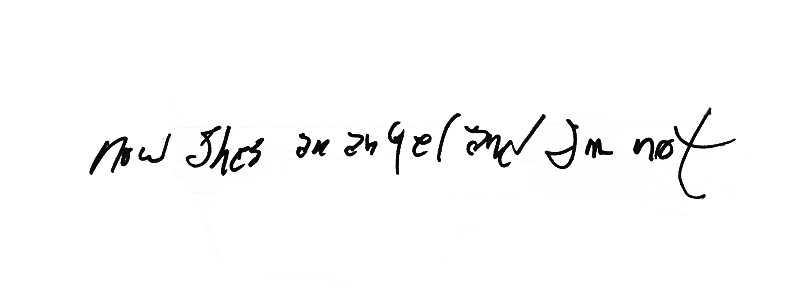 now shes an angel and Im not